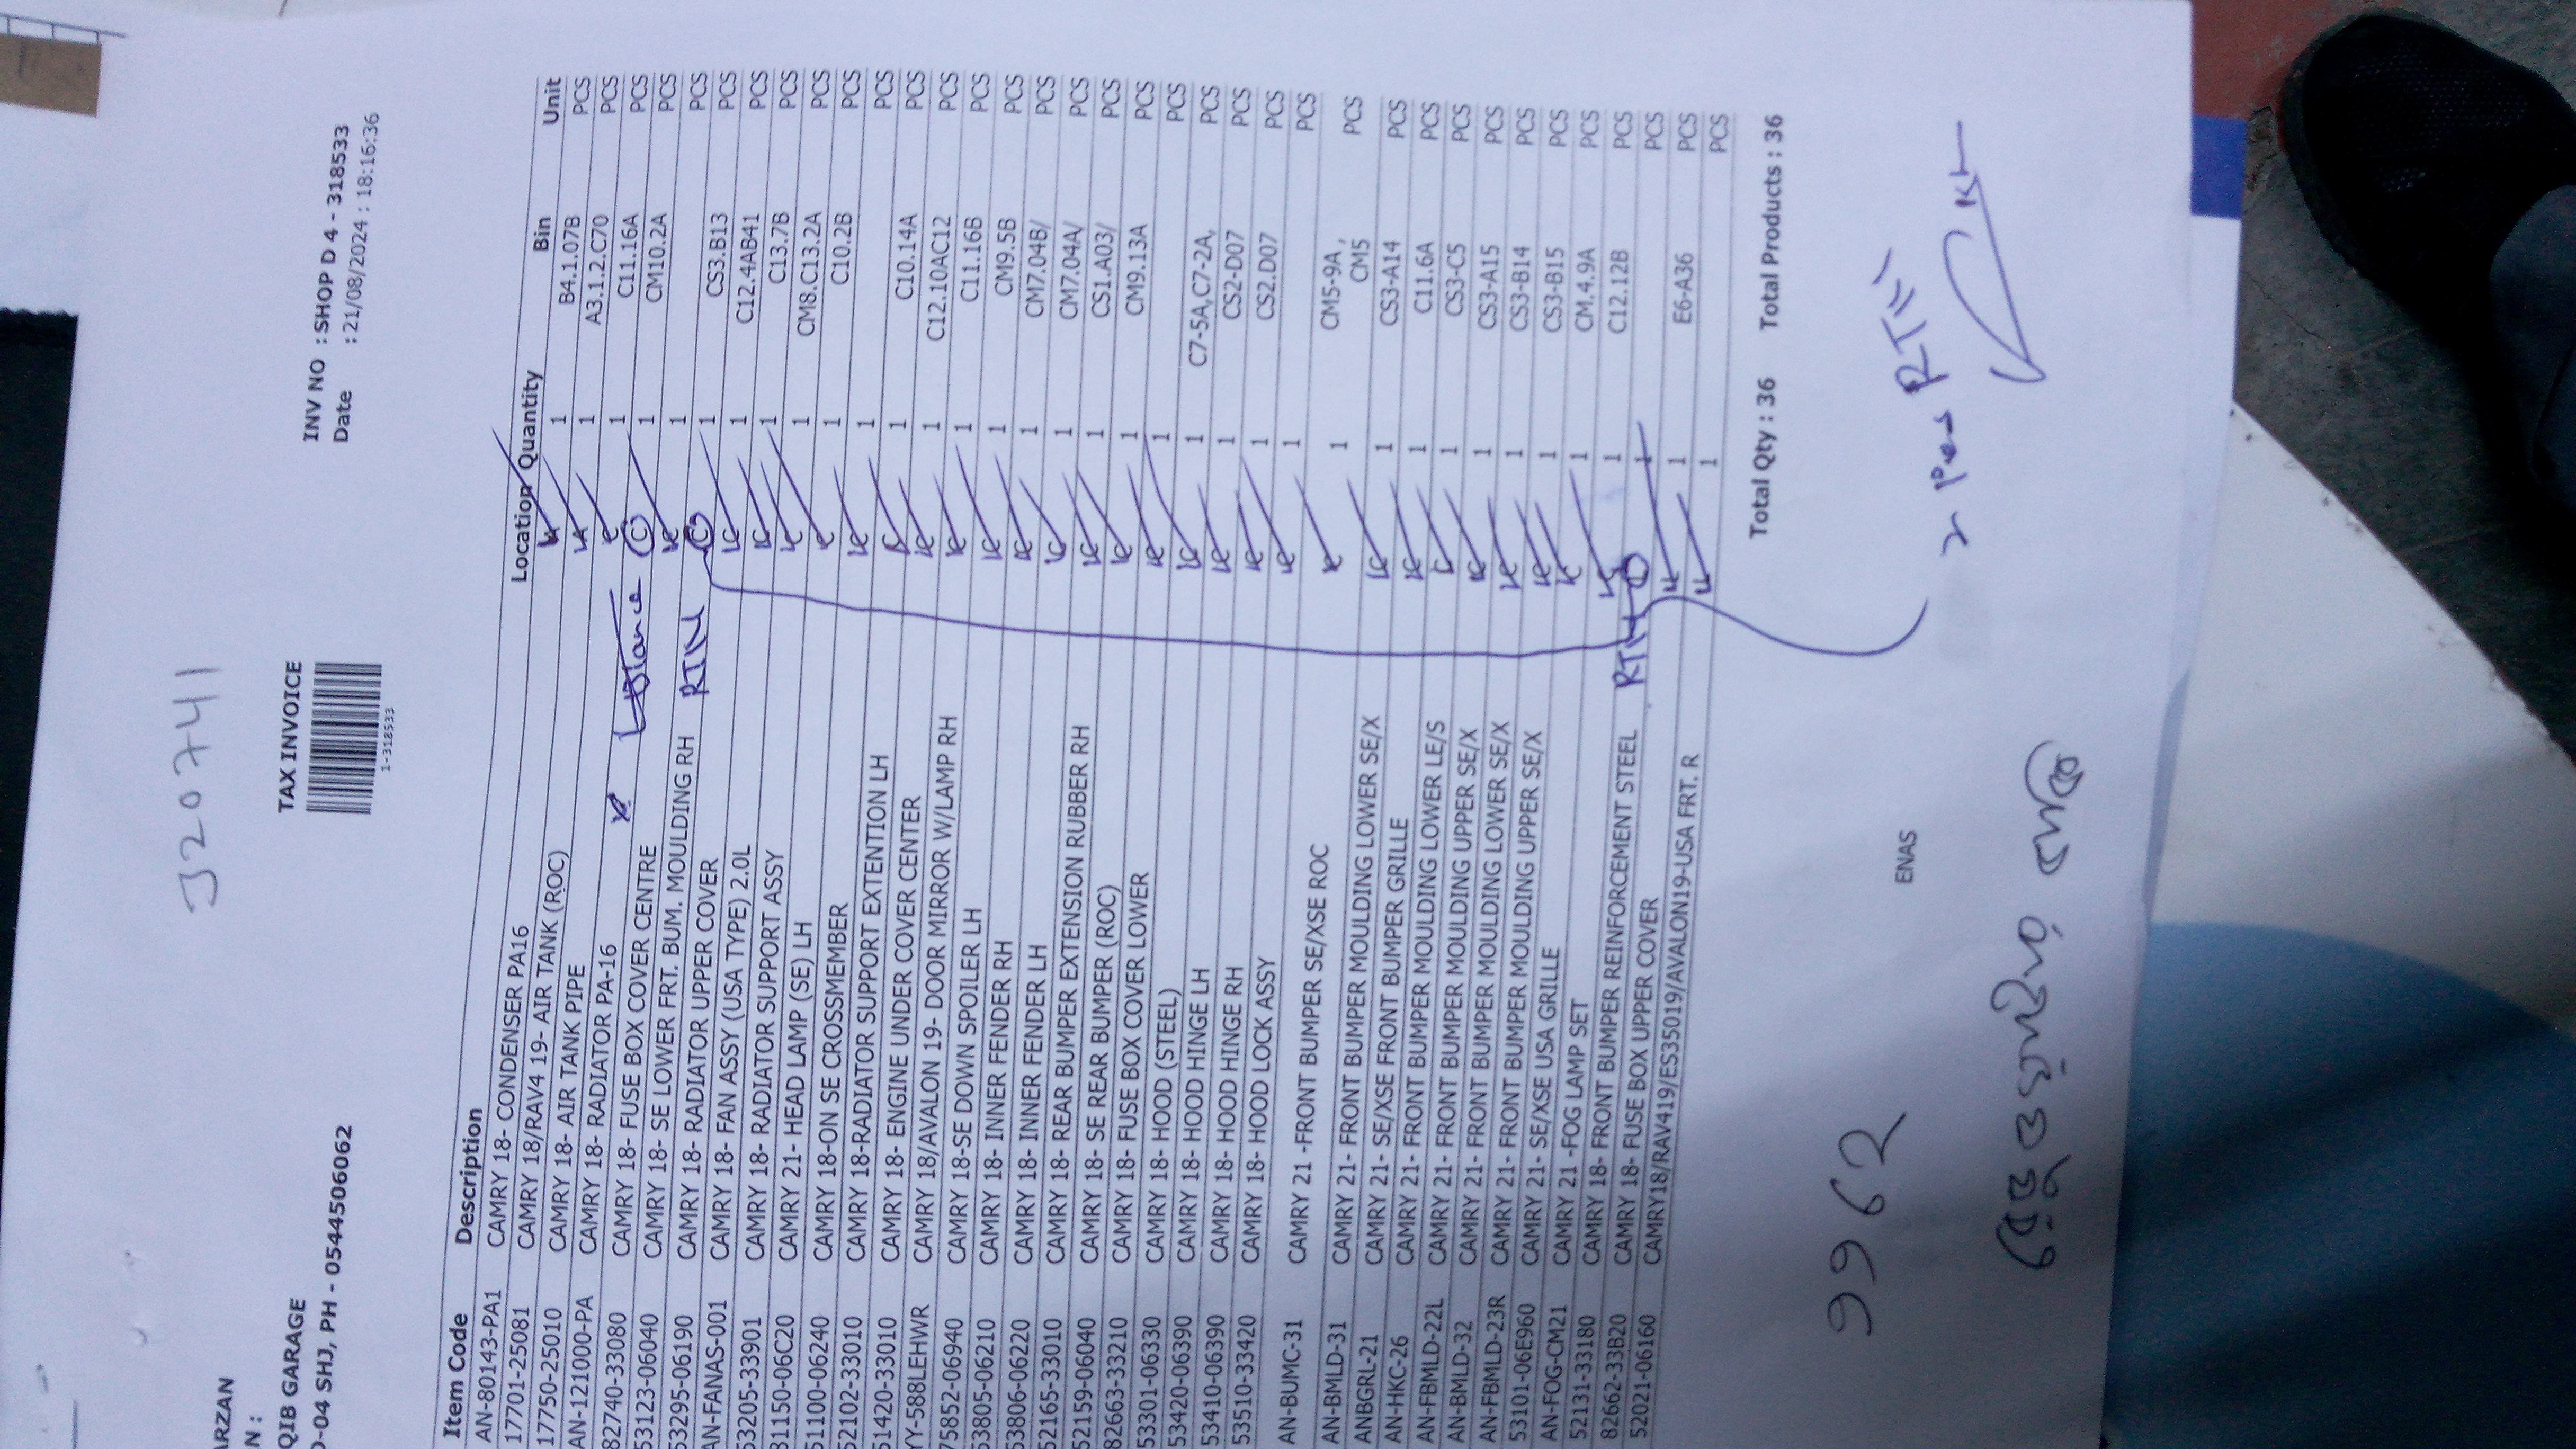 320741
ARZAN
N :
QIB GARAGE
O-04 SHJ, PH - 0544506062
TAX INVOICE
1-318533
INV NO : SHOP D 4 - 318533
Date : 21/08/2024 : 18:16:36
Item Code Description Location Quantity Bin Unit
AN-80143-PA1 CAMRY 18- CONDENSER PA16 1 B4.1.07B PCS
17701-25081 CAMRY 18/RAV4 19- AIR TANK (ROC) 1 A3.1.2.C70 PCS
17750-25010 CAMRY 18- AIR TANK PIPE 1 C11.16A PCS
AN-121000-PA CAMRY 18- RADIATOR PA-16 1 CM10.2A PCS
82740-33080 CAMRY 18- FUSE BOX COVER CENTRE 1 PCS
53123-06040 CAMRY 18- SE LOWER FRT. BUM. MOULDING RH RTN 1 CS3.B13 PCS
53295-06190 CAMRY 18- RADIATOR UPPER COVER 1 C12.4AB41 PCS
AN-FANAS-001 CAMRY 18- FAN ASSY (USA TYPE) 2.0L 1 C13.7B PCS
53205-33901 CAMRY 18- RADIATOR SUPPORT ASSY 1 CM8.C13.2A PCS
81150-06C20 CAMRY 21- HEAD LAMP (SE) LH 1 C10.2B PCS
51100-06240 CAMRY 18-ON SE CROSSMEMBER 1 PCS
52102-33010 CAMRY 18-RADIATOR SUPPORT EXTENTION LH 1 C10.14A PCS
51420-33010 CAMRY 18- ENGINE UNDER COVER CENTER 1 C12.10AC12 PCS
YY-588LEHWR CAMRY 18/AVALON 19- DOOR MIRROR W/LAMP RH 1 C11.16B PCS
75852-06940 CAMRY 18-SE DOWN SPOILER LH 1 CM9.5B PCS
53805-06210 CAMRY 18- INNER FENDER RH 1 CM7.04B/ PCS
53806-06220 CAMRY 18- INNER FENDER LH 1 CM7.04A/ PCS
52165-33010 CAMRY 18- REAR BUMPER EXTENSION RUBBER RH 1 CS1.A03/ PCS
52159-06040 CAMRY 18- SE REAR BUMPER (ROC) 1 CM9.13A PCS
82663-33210 CAMRY 18- FUSE BOX COVER LOWER 1 PCS
53301-06330 CAMRY 18- HOOD (STEEL) 1 C7-5A,C7-2A, PCS
53420-06390 CAMRY 18- HOOD HINGE LH 1 CS2-D07 PCS
53410-06390 CAMRY 18- HOOD HINGE RH 1 CS2.D07 PCS
53510-33420 CAMRY 18- HOOD LOCK ASSY 1 PCS
AN-BUMC-31 CAMRY 21 -FRONT BUMPER SE/XSE ROC 1 CM5-9A, CM5 PCS
AN-BMLD-31 CAMRY 21- FRONT BUMPER MOULDING LOWER SE/X 1 CS3-A14 PCS
ANBGRL-21 CAMRY 21- SE/XSE FRONT BUMPER GRILLE 1 C11.6A PCS
AN-HKC-26 CAMRY 21- FRONT BUMPER MOULDING LOWER LE/S 1 CS3-C5 PCS
AN-FBMLD-22L CAMRY 21- FRONT BUMPER MOULDING UPPER SE/X 1 CS3-A15 PCS
AN-BMLD-32 CAMRY 21- FRONT BUMPER MOULDING LOWER SE/X 1 CS3-B14 PCS
AN-FBMLD-23R CAMRY 21- FRONT BUMPER MOULDING UPPER SE/X 1 CS3-B15 PCS
53101-06E960 CAMRY 21- SE/XSE USA GRILLE 1 CM.4.9A PCS
AN-FOG-CM21 CAMRY 21 -FOG LAMP SET 1 C12.12B PCS
52131-33180 CAMRY 18- FRONT BUMPER REINFORCEMENT STEEL RTN 1 PCS
82662-33B20 CAMRY 18- FUSE BOX UPPER COVER 1 E6-A36 PCS
52021-06160 CAMRY18/RAV419/ES35019/AVALON19-USA FRT. R 1 PCS
Total Qty : 36 Total Products : 36
9962
ENAS
2 Pcs RTN